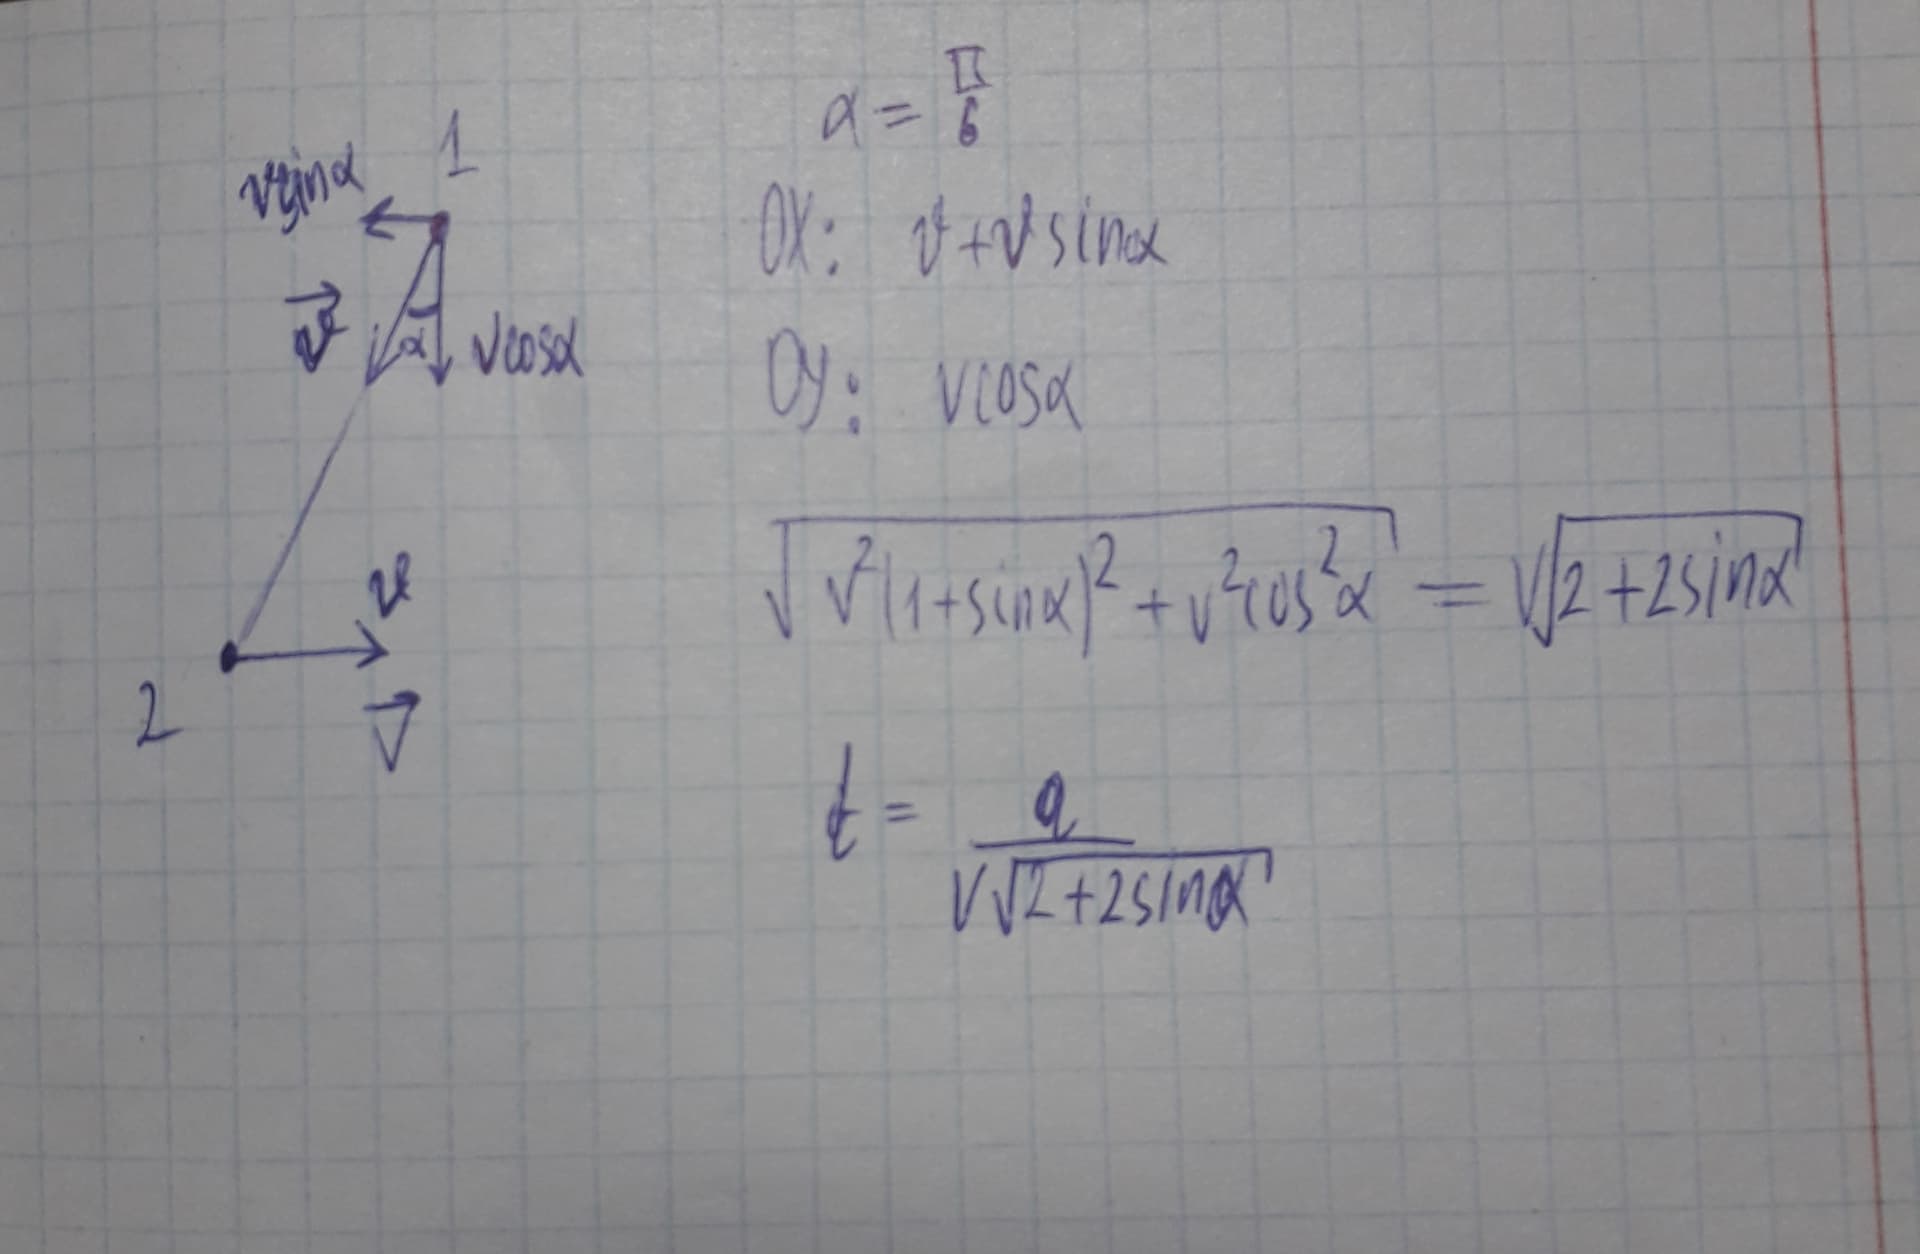 1
v sinα
v⃗
α
v cosα
v
2
v⃗
α = π/6
OX: v + v sinα
Oy: v cosα
√(v²(1+sinα)² + v²cos²α) = v√(2+2sinα)
t = a/(v√(2+2sinα))